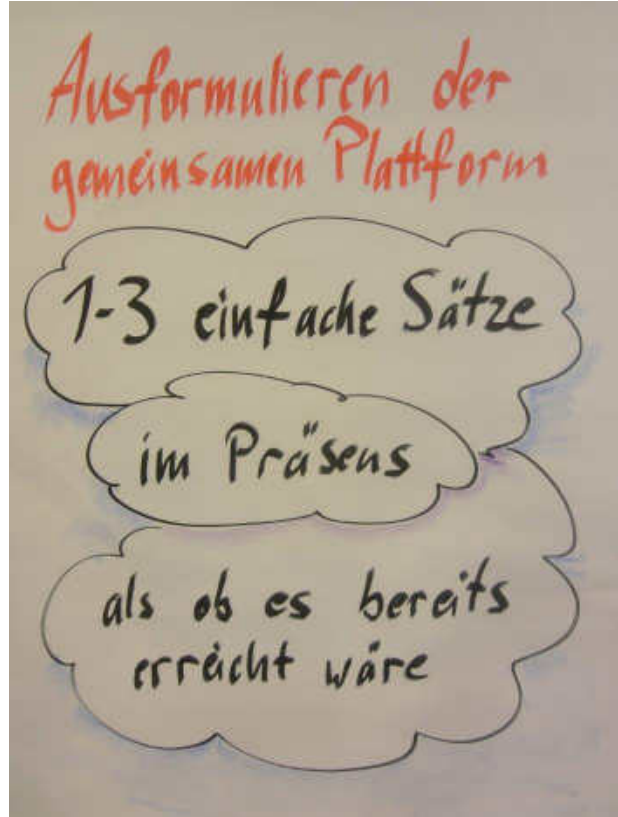 Ausformulieren der
gemeinsamen Plattform
1-3 einfache Sätze
im Präsens
als ob es bereits
erreicht wäre